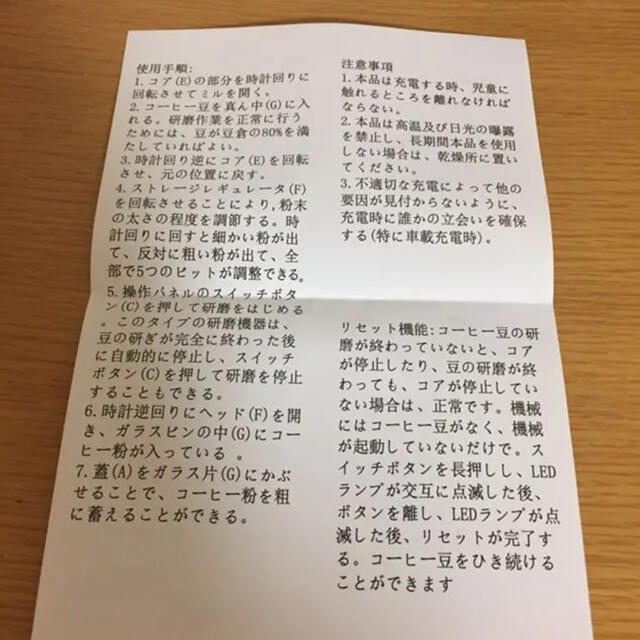 使用手順:
1. コア(E)の部分を時計回りに
回転させてミルを開く。
2. コーヒー豆を真ん中(G)に入
れる。研磨作業を正常に行う
ためには、豆が豆倉の80%を満
たしていればよい。
3. 時計回り逆にコア(E)を回転
させ、元の位置に戻す。
4. ストレージレギュレータ(F)
を回転させることにより,粉末
の太さの程度を調節する。時
計回りに回すと細かい粉が出
て、反対に粗い粉が出て、全
部で5つのビットが調整できる。
5. 操作パネルのスイッチボタ
ン(C)を押して研磨をはじめる
。このタイプの研磨機器は、
豆の研ぎが完全に終わった後
に自動的に停止し、スイッチ
ボタン(C)を押して研磨を停止
することもできる。
6. 時計逆回りにヘッド(F)を開
き、ガラスビンの中(G)にコー
ヒー粉が入っている 。
7. 蓋(A)をガラス片(G)にかぶ
せることで、コーヒー粉を粗
に蓄えることができる。
注意事項
1. 本品は充電する時、児童に
触れるところを離れなければ
ならない。
2. 本品は高温及び日光の曝露
を禁止し、長期間本品を使用
しない場合は、乾燥所に置い
てください。
3. 不適切な充電によって他の
要因が見付からないように、
充電時に誰かの立会いを確保
する(特に車載充電時)。
リセット機能:コーヒー豆の研
磨が終わっていないと、コア
が停止したり、豆の研磨が終
わっても、コアが停止してい
ない場合は、正常です。機械
にはコーヒー豆がなく、機械
が起動していないだけで。ス
イッチボタンを長押しし、LED
ランプが交互に点滅した後、
ボタンを離し、LEDランプが点
滅した後、リセットが完了す
る。コーヒー豆をひき続ける
ことができます